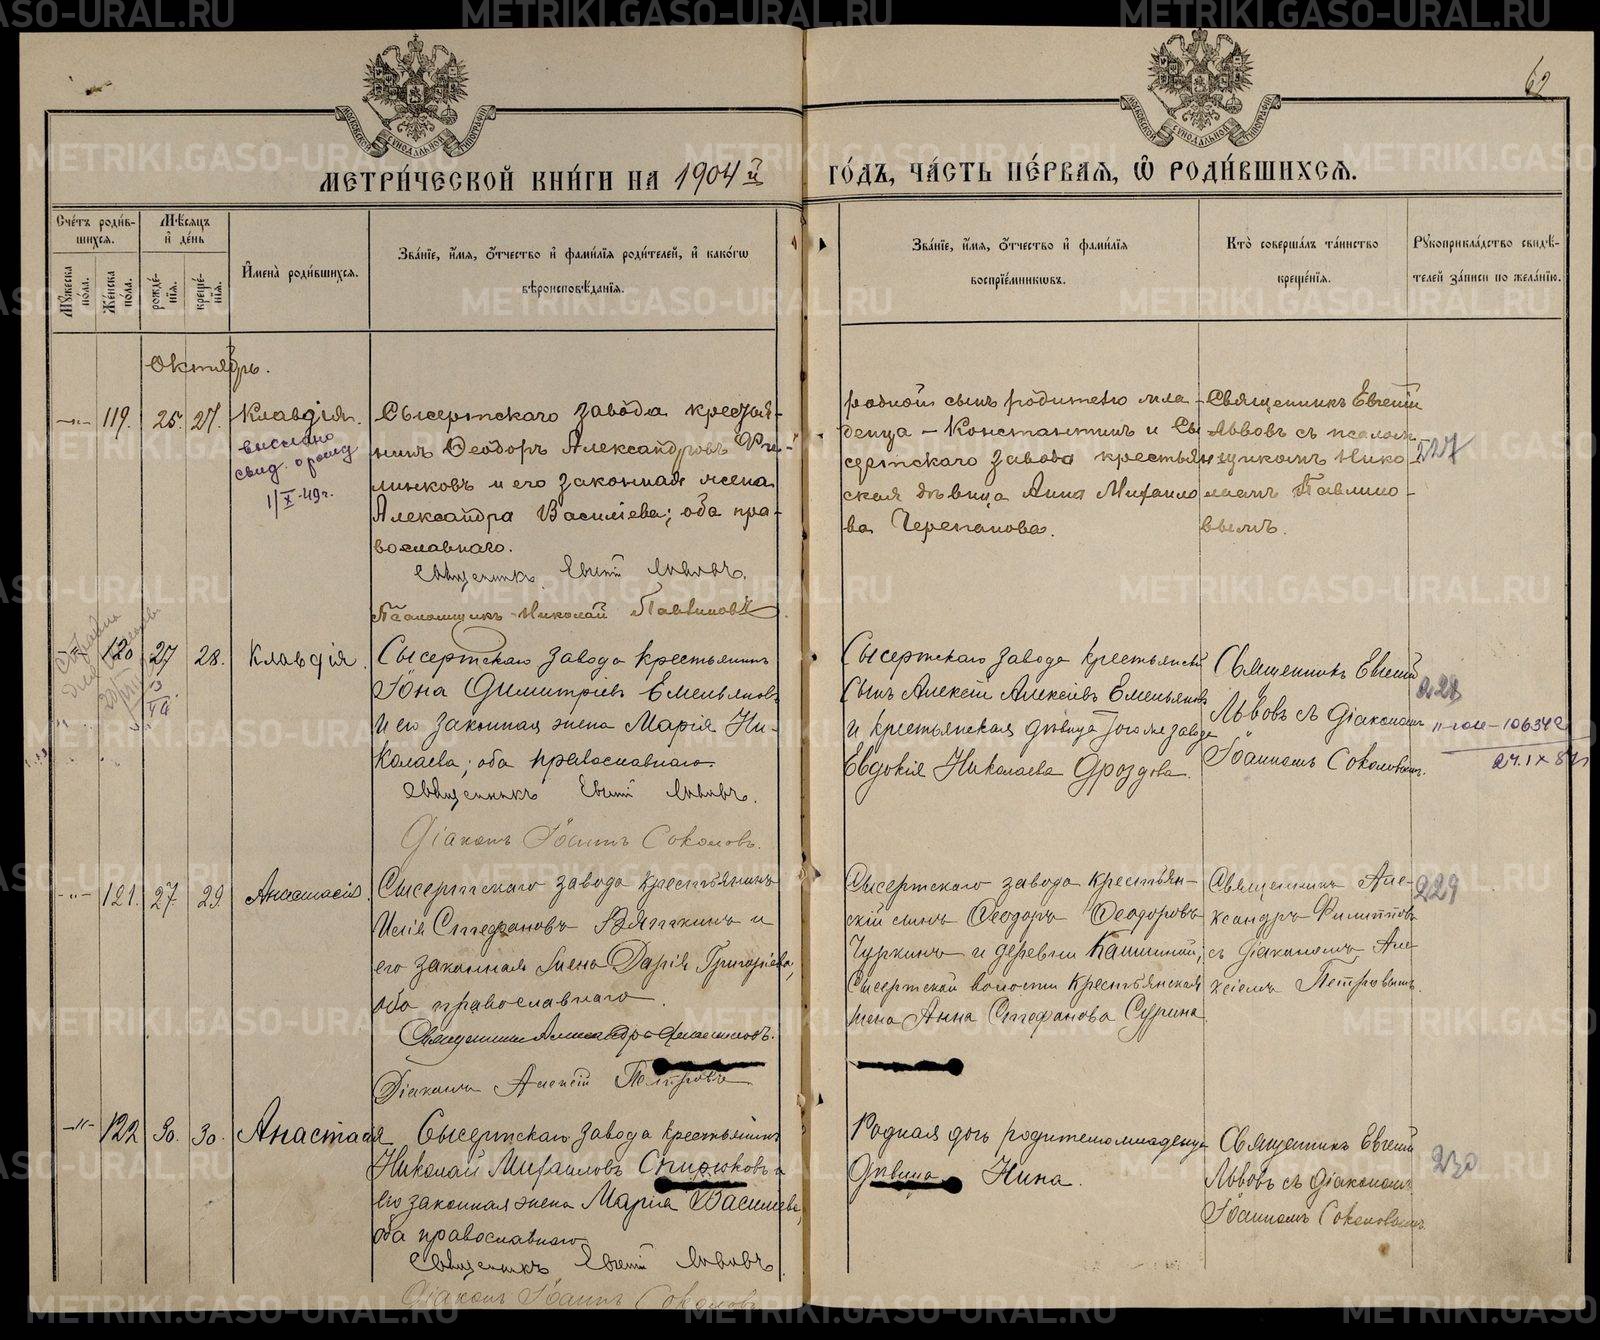 62
МОСКОВСКОЙ СѴНОДАЛЬНОЙ ТИПОГРАФІИ
МОСКОВСКОЙ СѴНОДАЛЬНОЙ ТИПОГРАФІИ
МЕТРИ́ЧЕСКОЙ КНИ́ГИ НА 1904й ГО́ДЪ, ЧА́СТЬ ПЕ́РВАѦ, Ѡ҆ РОДИ́ВШИХСѦ.
Сче́тъ роди́в-
шихсѧ.
Мꙋ́жеска по́ла.
Же́нска по́ла.
Мѣ́сѧцъ
и҆ де́нь
рожде́-
нїѧ.
креще́-
нїѧ.
И҆мена̀ роди́вшихсѧ.
Зва́нїе, и҆́мѧ, ѻ҆́тчество и҆ фами́лїѧ роди́телей, и҆ како́гѡ
вѣроисповѣ́данїѧ.
Зва́нїе, и҆́мѧ, ѻ҆́тчество и҆ фами́лїѧ
воспрїе́мникѡвъ.
Кто̀ соверша́лъ та́инство
креще́нїѧ.
Рꙋкоприкла́дство свидѣ́-
телей за́писи по жела́нїю.
Октябрь.
-"- 119. 25. 27. Клавдія.
выслано
свид. о рожд
1/X-49г.
Сысертскаго завода крестья-
нинъ Ѳеодоръ Александровъ
и его законная жена
Александра Василіева; оба пра-
вославнаго.
Священникъ Евгеній Львовъ.
Псаломщикъ Николай Павлиновъ
родной сынъ родителю мла-
денца – Константинъ и Сы
сертскаго завода крестьян
ская дѣвица Анна Михайло
ва Черепанова.
Священникъ Евгеній
Львовъ съ псалом
щикомъ Нико-
лаемъ Павлино-
вымъ.
227
120 27 28. Клавдія.
Сысертскаго завода крестьянинъ
Іона Димитріевъ Емельяновъ
и его законная жена Марія Ни-
колаева; оба православнаго.
Священникъ Евгеній Львовъ.
Діаконъ Іоаннъ Соколовъ.
Сысертскаго завода крестьянскій
сынъ Алексій Алексіевъ Емельяновъ
и крестьянская дѣвица того же завода
Евдокія Николаева Дроздова.
Священникъ Евгеній
Львовъ съ діакономъ
Іоанномъ Соколовымъ.
228
-"- 121. 27. 29. Анастасія.
Сысертскаго завода крестьянинъ
Илія Стефановъ Вяткинъ и
его законная жена Дарія Григоріева,
оба православнаго.
Священникъ Александръ Филипповъ.
Діаконъ Алексій Петровъ
Сысертскаго завода крестьян-
скій сынъ Ѳеодоръ Ѳеодоровъ
Чуркинъ и деревни Кашиной,
Сысертской волости крестьянская
жена Анна Стефанова Сурина.
Священникъ Але-
ксандръ Филипповъ
съ діакономъ Але
ксіемъ Петровымъ.
229
-"- 122 30. 30. Анастасія
Сысертскаго завода крестьянинъ
Николай Михаиловъ Спирюковъ и
его законная жена Марія Василіева,
оба православнаго
Священникъ Евгеній Львовъ.
Діаконъ Іоаннъ Соколовъ
Родная дочь родителю младенца
дѣвица Нина.
Священникъ Евгеній
Львовъ съ діакономъ
Іоанномъ Соколовымъ
230
METRIKI.GASO-URAL.RU